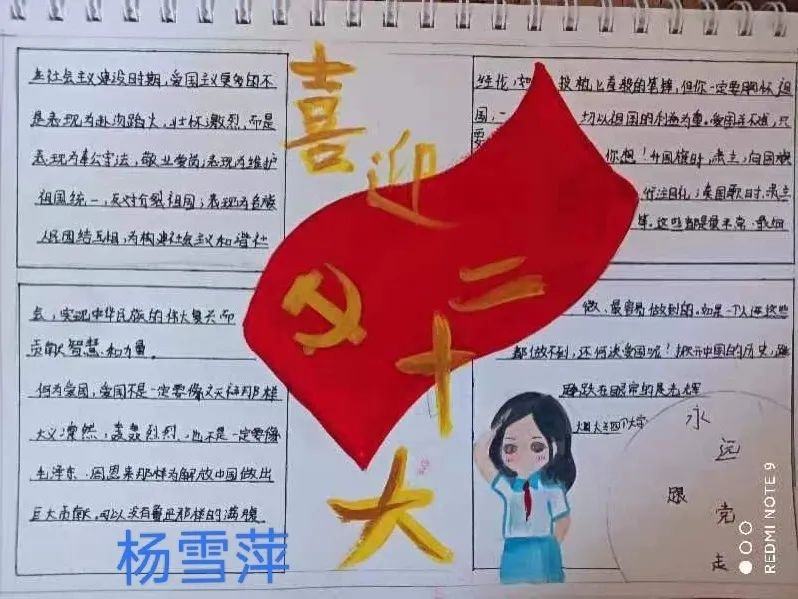 喜迎二十大
在社会主义建设时期,爱国主义更多的不
是表现为赴汤蹈火,壮怀激烈,而是
表现为奉公守法,敬业爱岗;表现为维护
祖国统一,反对分裂祖国;表现为各族
人民团结互相,为构建社会主义和谐社
会,实现中华民族的伟大复兴而
贡献智慧和力量。
何为爱国,爱国不是一定要像文天祥那样
大义凛然,轰轰烈烈,也不是一定要像
毛泽东、周恩来那样为解放中国做出
巨大贡献,可以没有鲁迅那样的满腹
经伦,如
投枪匕首般的笔锋,但你一定要胸怀祖
国,一
切以祖国的利益为重。爱国并不难,只
要
你想!升国旗时,肃立,向国旗
行注目礼;奏国歌时,肃立
等。这些都是最平常、最细
微、最容易做到的。如果一个人连这些
都做不到,还何谈爱国呢!掀开中国的历史,
在眼帘的是光辉
永远跟党走
杨雪萍
REDMI NOTE 9